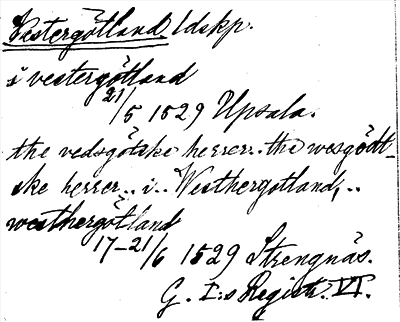 Vestergötland, ldskp.
i vestergötland
21/5 1529 Upsala.
the vedsgötske herrer.. the wesgödt-
ske herrer.. i.. Westhergotland,..
westhergötland
17-21/6 1529 Strengnäs.
G. I:s Registr. VI.